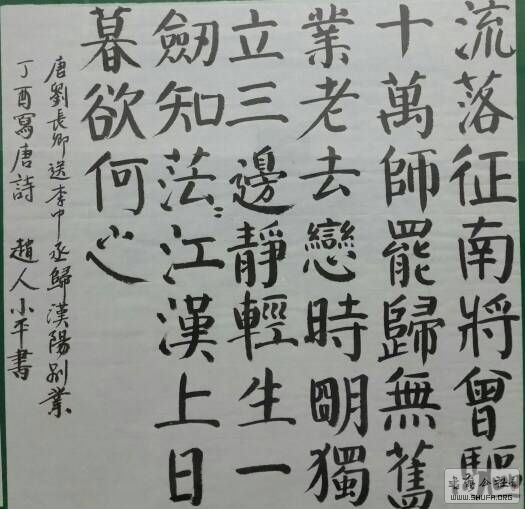 流落征南將曾驅
十萬師罷歸無舊
業老去戀時明獨
立三邊靜輕生一
劒知茫〻江漢上日
暮欲何之
唐劉長卿送李中丞歸漢陽別業
丁酉寫唐詩 趙人小平書
WWW.SHUFA.ORG